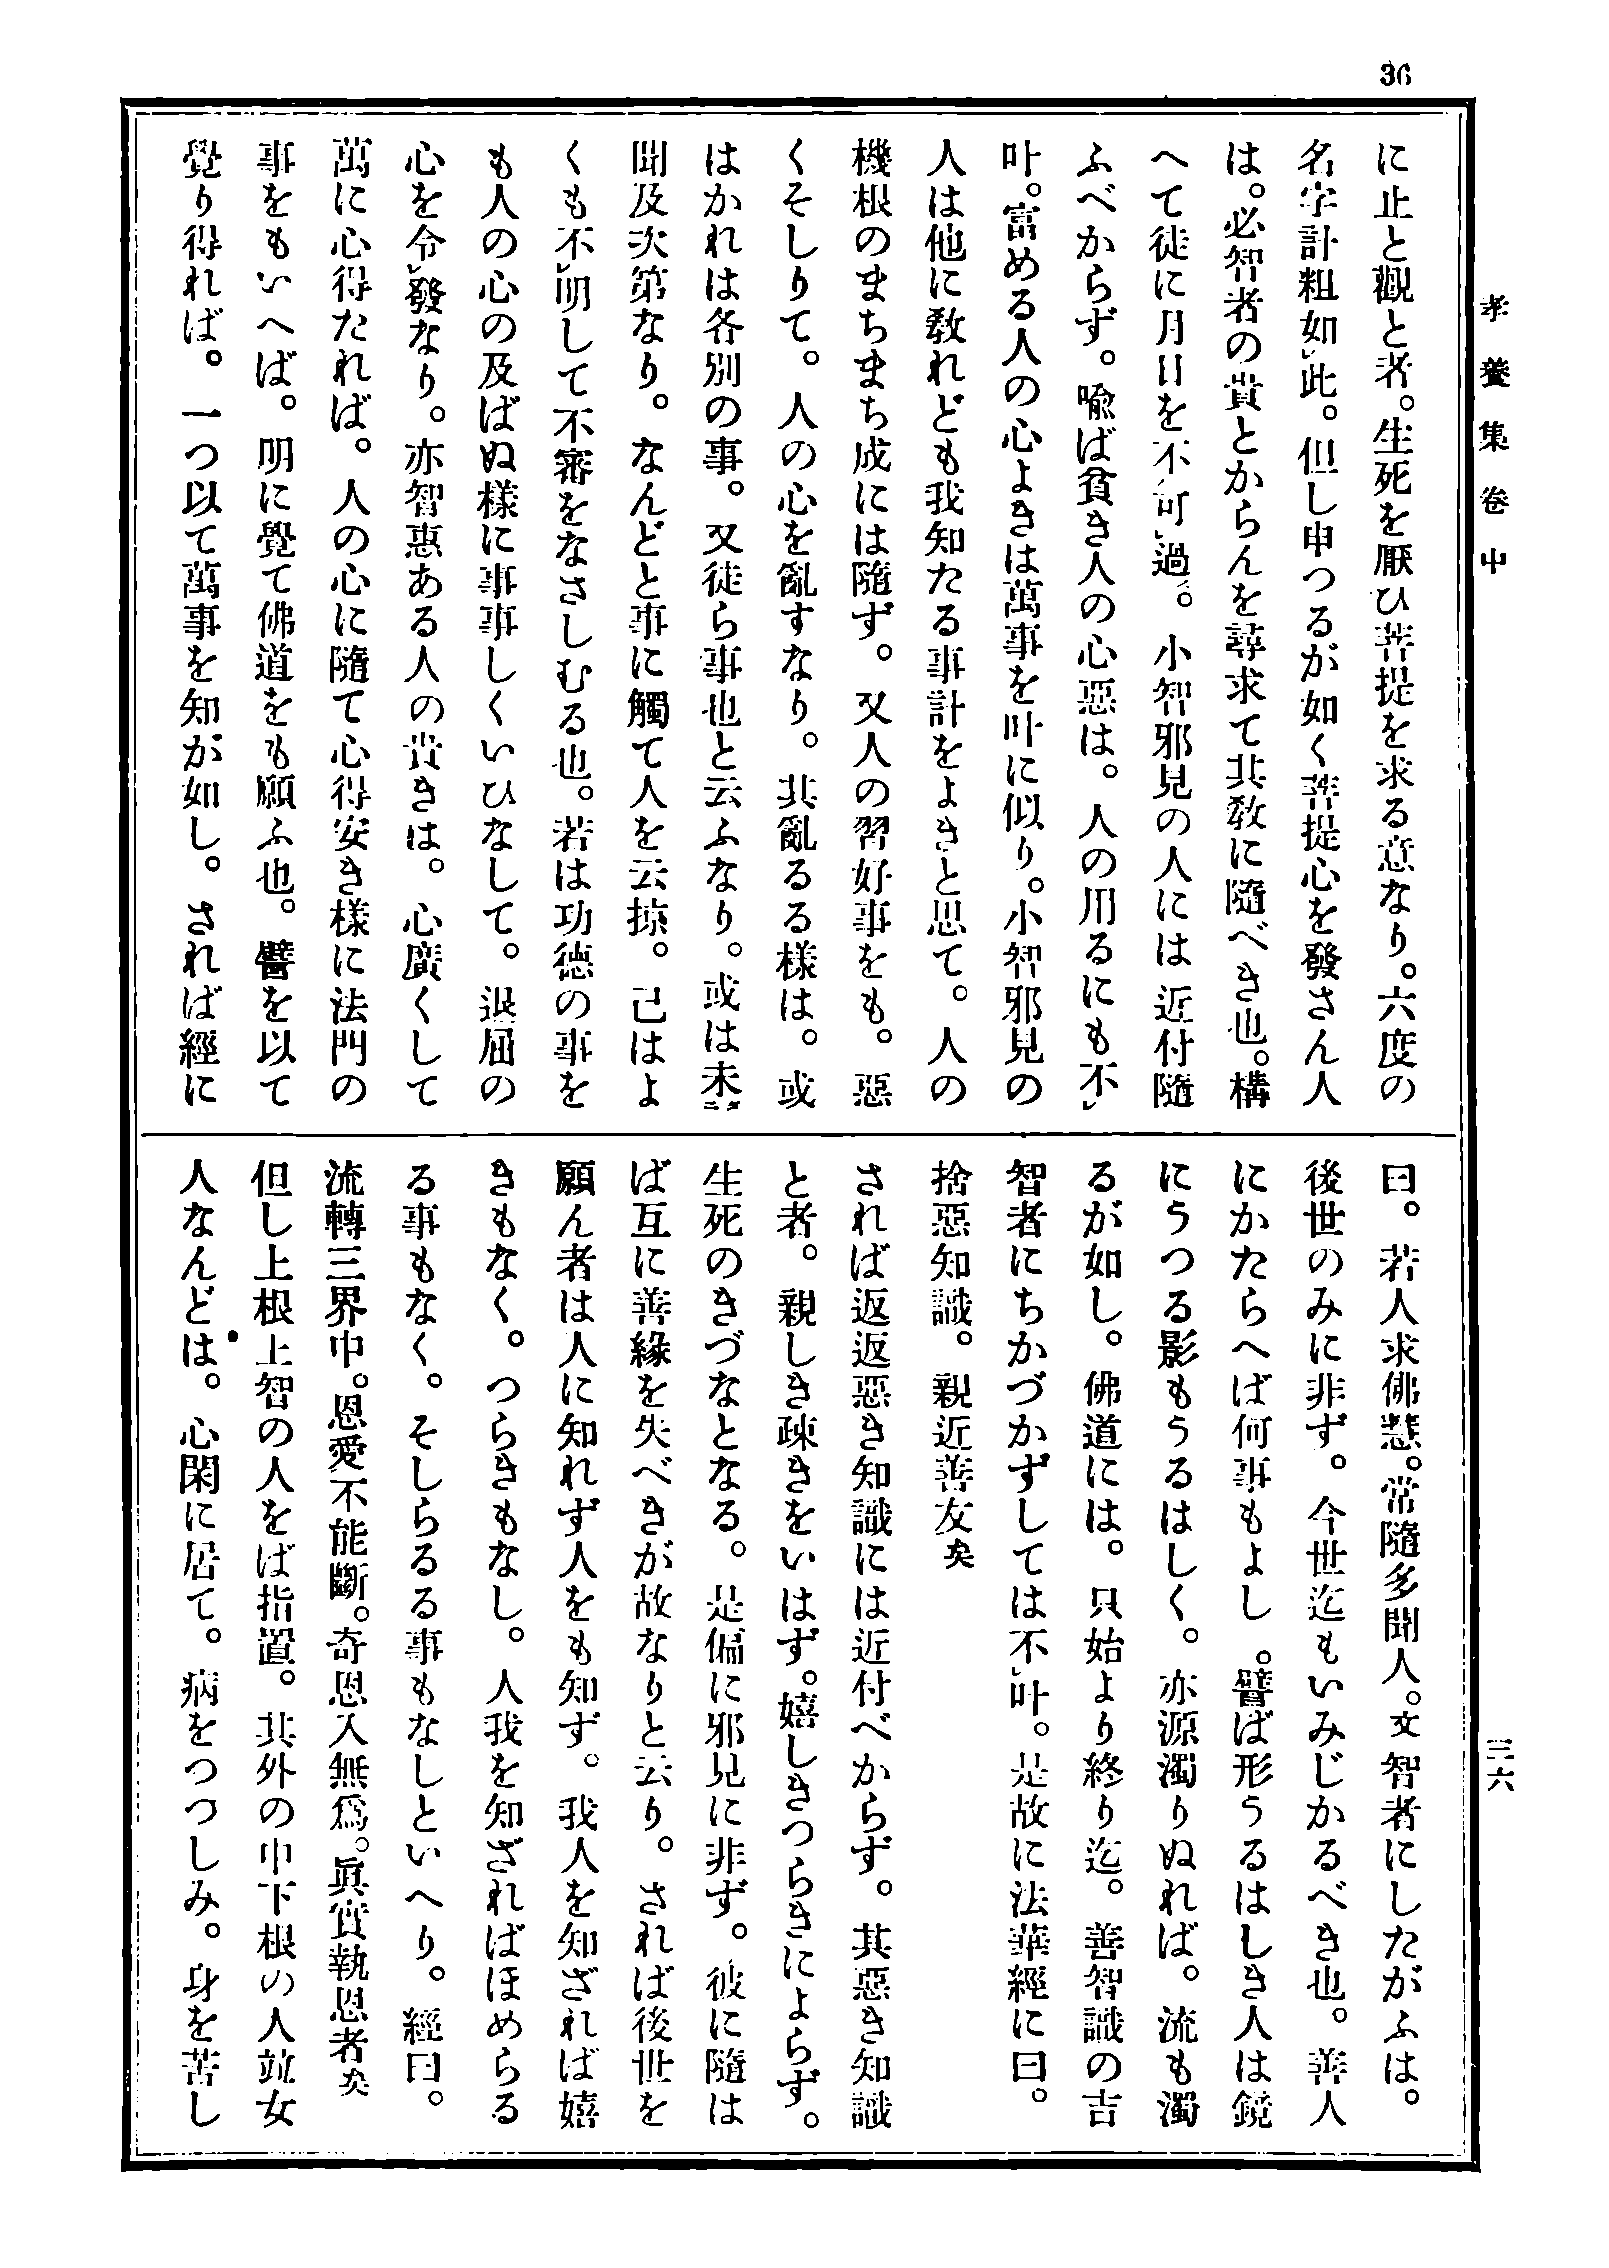 36
孝養集卷中
三六
に止と觀と者。生死を厭ひ菩提を求る意なり。六度の
名字計粗如レ此。但し申つるが如く菩提心を發さん人
は。必智者の貴とからんを尋求て其敎に隨べき也。構
へて徒に月日を不レ可レ過。小智邪見の人には近付隨
ふべからず。喩ば貧き人の心惡は。人の用るにも不レ
叶。富める人の心よきは萬事を叶に似り。小智邪見の
人は他に敎れども我知たる事計をよきと思て。人の
機根のまちまち成には隨ず。又人の習好事をも。惡
くそしりて。人の心を亂すなり。其亂るる樣は。或
はかれは各別の事。又徒ら事也と云ふなり。或は未レ
聞及次第なり。なんどと事に觸て人を云掠。己はよ
くも不レ明して不審をなさしむる也。若は功德の事を
も人の心の及ばぬ樣に事事しくいひなして。退屈の
心を令レ發なり。亦智惠ある人の貴きは。心廣くして
萬に心得たれば。人の心に隨て心得安き樣に法門の
事をもいへば。明に覺て佛道をも願ふ也。譬を以て
覺り得れば。一つ以て萬事を知が如し。されば經に
曰。若人求佛慧。常隨多聞人。文智者にしたがふは。
後世のみに非ず。今世迄もいみじかるべき也。善人
にかたらへば何事もよし。譬ば形うるはしき人は鏡
にうつる影もうるはしく。亦源濁りぬれば。流も濁
るが如し。佛道には。只始より終り迄。善智識の吉
智者にちかづかずしては不レ叶。是故に法華經に曰。
捨惡知識。親近善友矣
されば返返惡き知識には近付べからず。其惡き知識
と者。親しき疎きをいはず。嬉しきつらきによらず。
生死のきづなとなる。是偏に邪見に非ず。彼に隨は
ば互に善緣を失べきが故なりと云り。されば後世を
願ん者は人に知れず人をも知ず。我人を知ざれば嬉
きもなく。つらきもなし。人我を知ざればほめらる
る事もなく。そしらるる事もなしといへり。經曰。
流轉三界中。恩愛不能斷。奇恩入無爲。眞實執恩者矣
但し上根上智の人をば指置。其外の中下根の人竝女
人なんどは。心閑に居て。病をつつしみ。身を苦し